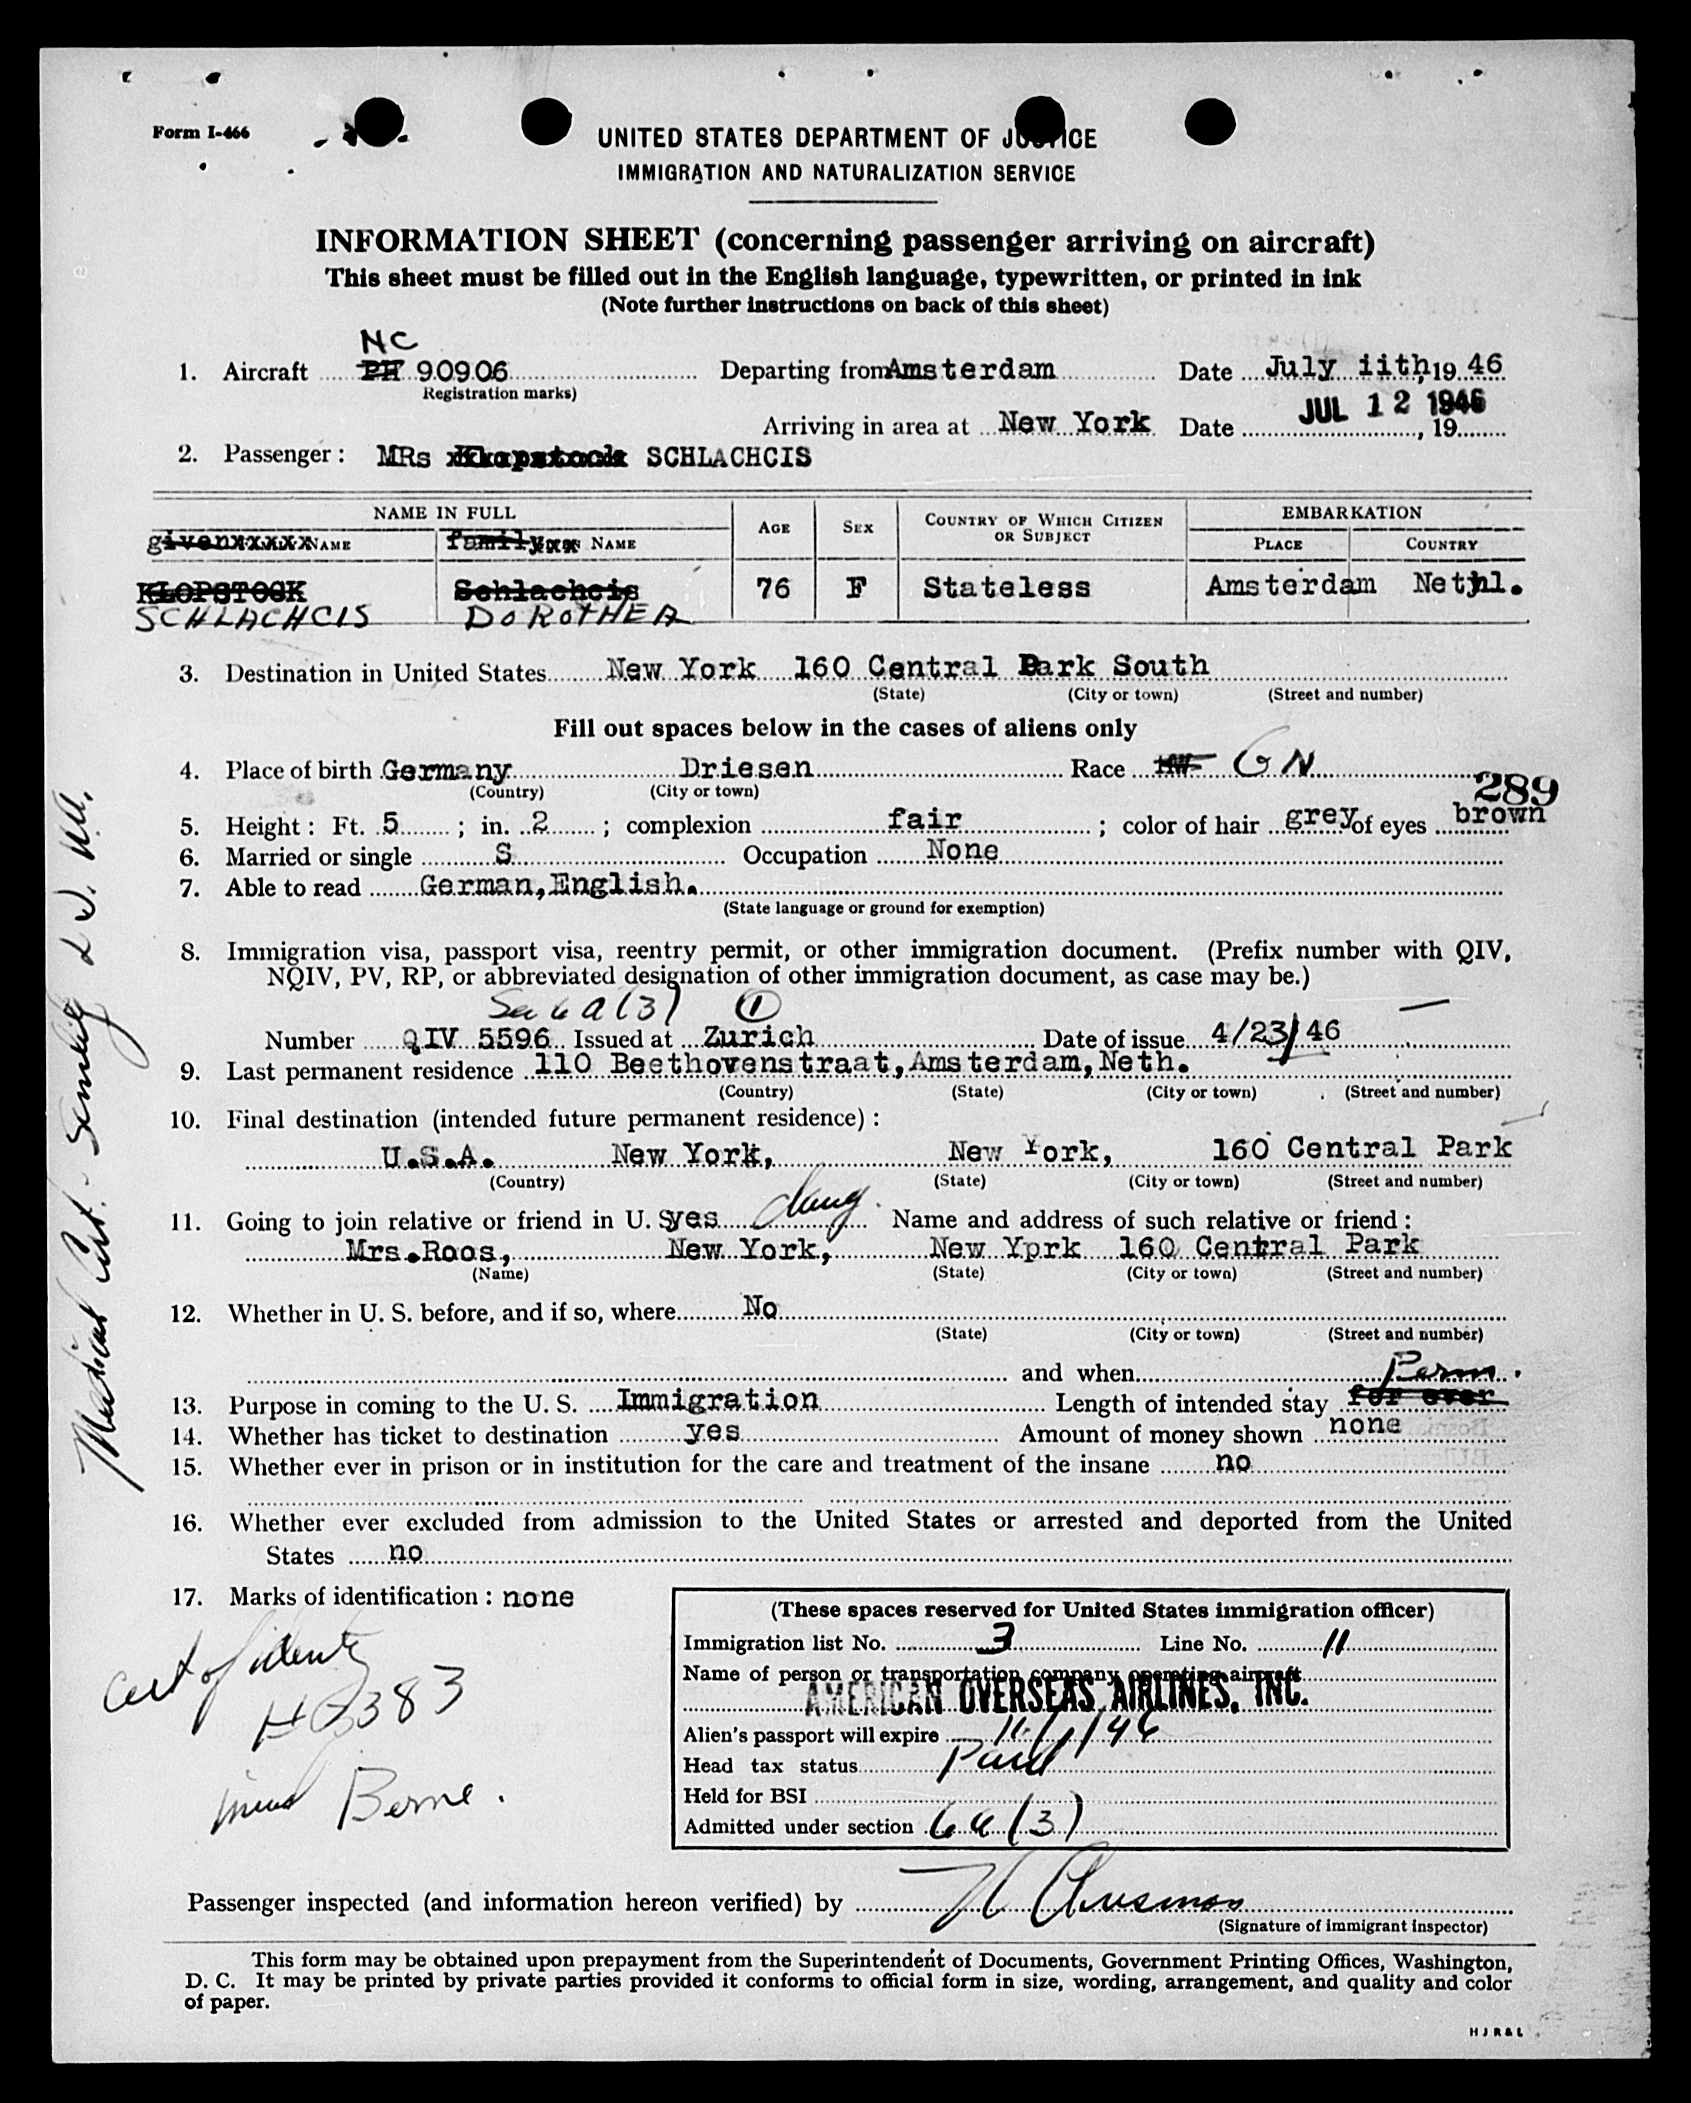 Form I-466
UNITED STATES DEPARTMENT OF JUSTICE
IMMIGRATION AND NATURALIZATION SERVICE
INFORMATION SHEET (concerning passenger arriving on aircraft)
This sheet must be filled out in the English language, typewritten, or printed in ink
(Note further instructions on back of this sheet)
NC
1. Aircraft PH 90906 Departing from Amsterdam Date July iith, 19 46
(Registration marks)
JUL 12 1946
Arriving in area at New York Date , 19
2. Passenger: MRs Klopstock SCHLACHCIS
NAME IN FULL AGE SEX COUNTRY OF WHICH CITIZEN OR SUBJECT EMBARKATION
givenxxxxx NAME familyxxx NAME PLACE COUNTRY
KLOPSTOCK Schlachcis 76 F Stateless Amsterdam Nethl.
SCHLACHCIS DOROTHEA
3. Destination in United States New York 160 Central Park South
(State) (City or town) (Street and number)
Fill out spaces below in the cases of aliens only
4. Place of birth Germany Driesen Race GN
(Country) (City or town)
289
5. Height: Ft. 5 ; in. 2 ; complexion fair ; color of hair grey of eyes brown
6. Married or single S Occupation None
7. Able to read German, English.
(State language or ground for exemption)
8. Immigration visa, passport visa, reentry permit, or other immigration document. (Prefix number with QIV,
NQIV, PV, RP, or abbreviated designation of other immigration document, as case may be.)
Sec 6a(3) 1
Number QIV 5596 Issued at Zurich Date of issue 4/23/46
9. Last permanent residence 110 Beethovenstraat, Amsterdam, Neth.
(Country) (State) (City or town) (Street and number)
10. Final destination (intended future permanent residence):
U.S.A. New York, New York, 160 Central Park
(Country) (State) (City or town) (Street and number)
11. Going to join relative or friend in U. S. yes daug. Name and address of such relative or friend:
Mrs. Roos, New York, New Yprk 160 Central Park
(Name) (State) (City or town) (Street and number)
12. Whether in U. S. before, and if so, where No
(State) (City or town) (Street and number)
and when
Perm.
13. Purpose in coming to the U. S. Immigration Length of intended stay for ever
14. Whether has ticket to destination yes Amount of money shown none
15. Whether ever in prison or in institution for the care and treatment of the insane no
16. Whether ever excluded from admission to the United States or arrested and deported from the United
States no
17. Marks of identification: none
Cert of identy
383
Berne.
(These spaces reserved for United States immigration officer)
Immigration list No. 3 Line No. 11
Name of person or transportation company operating aircraft
AMERICAN OVERSEAS AIRLINES, INC.
Alien's passport will expire 11/1/46
Head tax status Paid
Held for BSI
Admitted under section 6a(3)
Passenger inspected (and information hereon verified) by
(Signature of immigrant inspector)
This form may be obtained upon prepayment from the Superintendent of Documents, Government Printing Offices, Washington,
D. C. It may be printed by private parties provided it conforms to official form in size, wording, arrangement, and quality and color
of paper.
H J R & L
Medical Cert. Senility